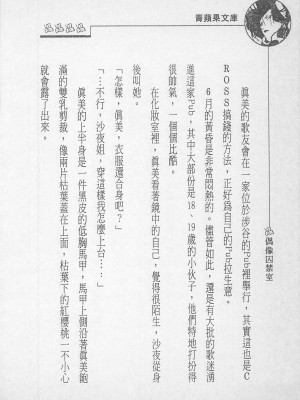 青蘋果文庫
偶像囚禁室
真美的歌友會在一家位於涉谷的Pub裡舉行，其實這也是C
ROSS搞錢的方法，正好為自己的Pub拉生意。
6月的黃昏是非常悶熱的。儘管如此，還是有大批的歌迷湧
進這家Pub，其中大部份是18、19歲的小伙子，他們特地打扮得
很帥氣，一個個比酷。
在化妝室裡，真美看著鏡中的自己，覺得很陌生，沙夜從身
後叫她。
「怎樣，真美，衣服還合身吧？」
「…不行，沙夜姐，穿這樣我怎麼上台…」
真美的上半身是一件黑皮的低胸馬甲，馬甲上側沿著真美飽
滿的雙乳剪裁，像兩片枯葉蓋在上面，枯葉下的紅櫻桃一不小心
就會露了出來。